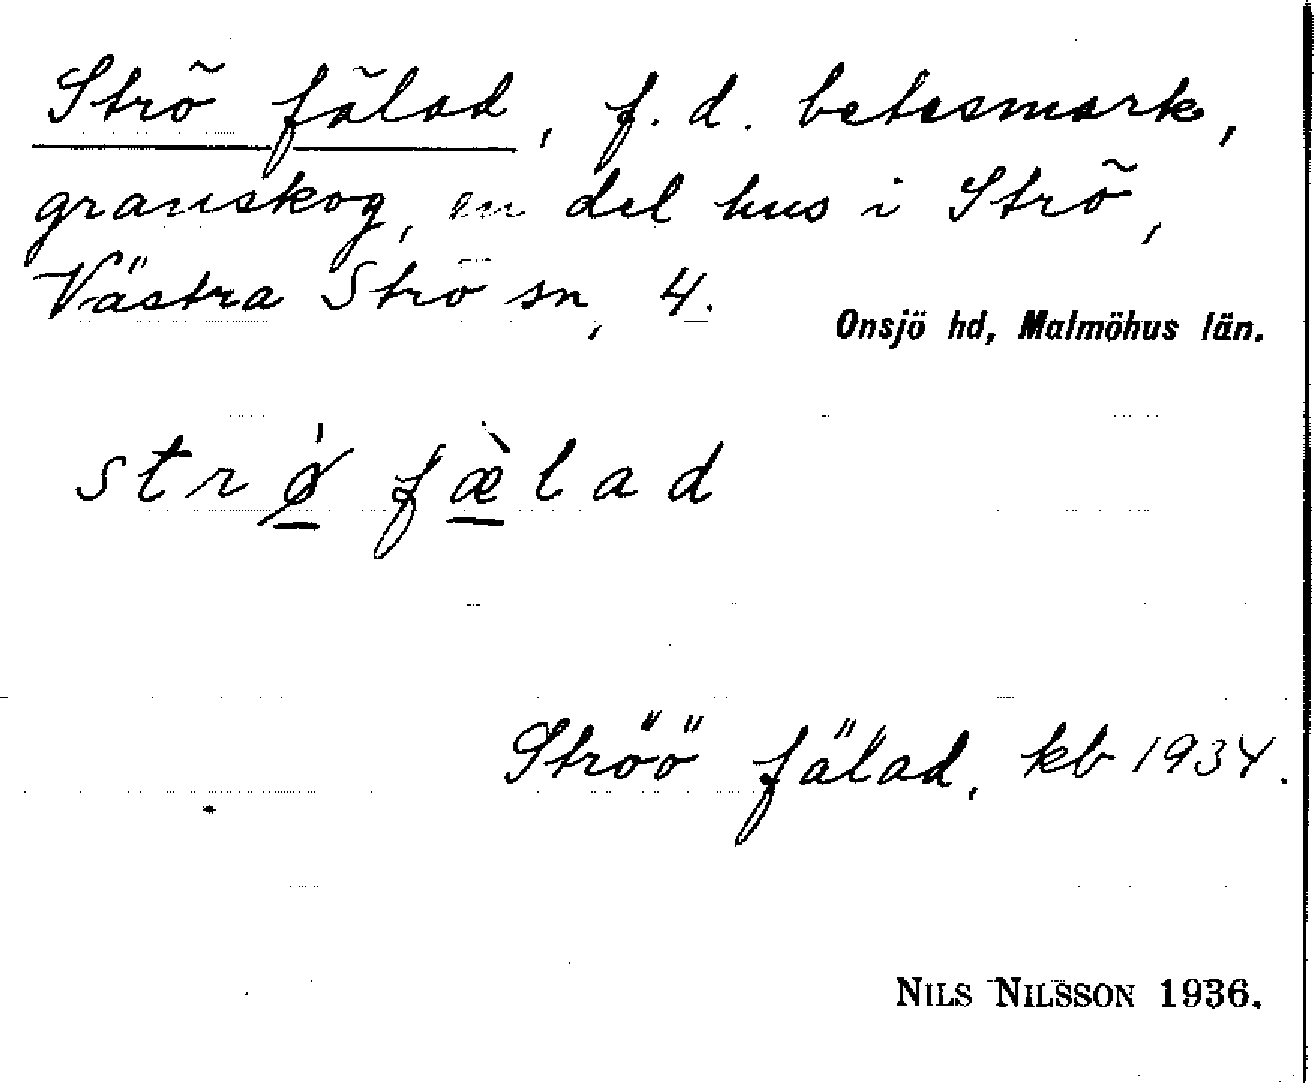 Strö fälad, f. d. betesmark,
granskog, en del hus i Strö,
Västra Strö sn, 4.
Onsjö hd, Malmöhus län.
strǿ fæ̀lad
Ströö fälad, kb 1934.
NILS NILSSON 1936.